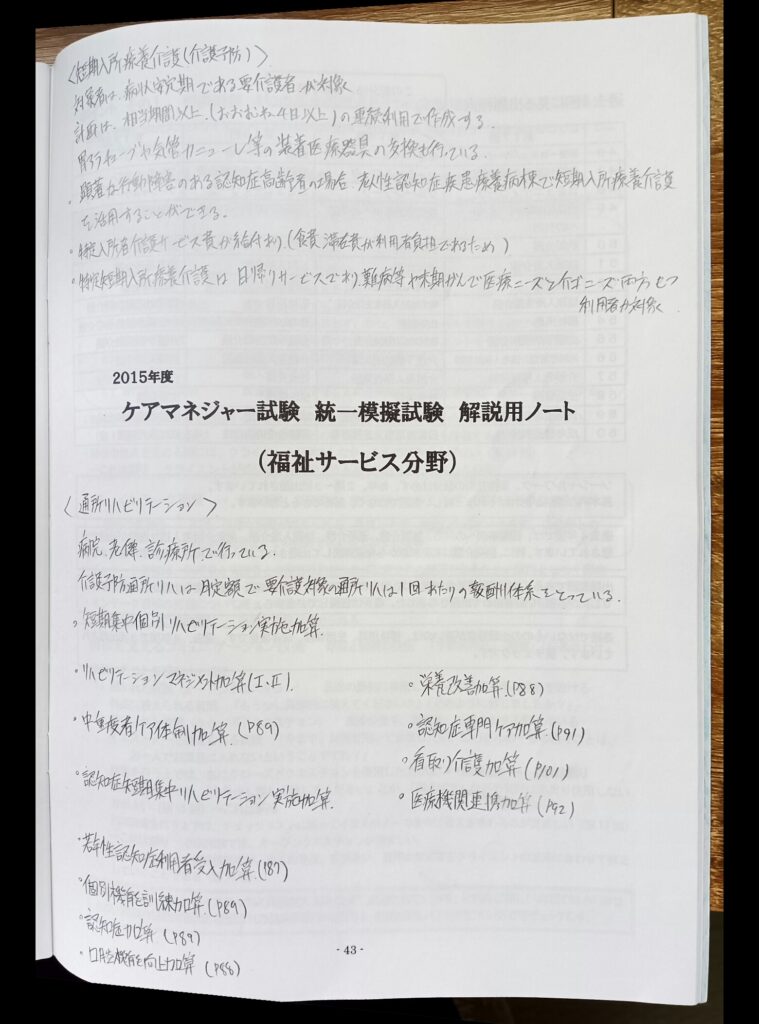 〈短期入所療養介護(介護予防)〉
対象者は、病状安定期である要介護者が対象
計画は、相当期間以上(おおむね4日以上)の継続利用で作成する。
胃ろうチューブや気管カニューレ等の装着医療器具の交換も行っている。
・顕著な行動障害のある認知症高齢者の場合 老人性認知症疾患療養病棟で短期入所療養介護
を活用することができる。
・特定入所者介護サービス費が給付あり(食費 滞在費が利用者負担であるため)
・特定短期入所療養介護は 日帰りサービスであり、難病等や末期がんで医療ニーズと介ゴニーズ両方もつ
利用者が対象
2015年度
ケアマネジャー試験 統一模擬試験 解説用ノート
(福祉サービス分野)
〈通所リハビリテーション〉
病院、老健、診療所で行っている。
介護予防通所リハは月定額で要介護対象の通所リハは1回あたりの報酬体系をとっている。
・短期集中個別リハビリテーション実施加算.
・リハビリテーションマネジメント加算(I・II).
・中重度者ケア体制加算.(P89)
・認知症短期集中リハビリテーション実施加算.
・若年性認知症利用者受入加算.(P87)
・個別機能訓練加算.(P89)
・認知症加算(P89)
・口腔機能向上加算(P88)
・栄養改善加算(P88)
・認知症専門ケア加算.(P91)
・看取り介護加算(P101)
・医療機関連携加算(P92)
- 43 -